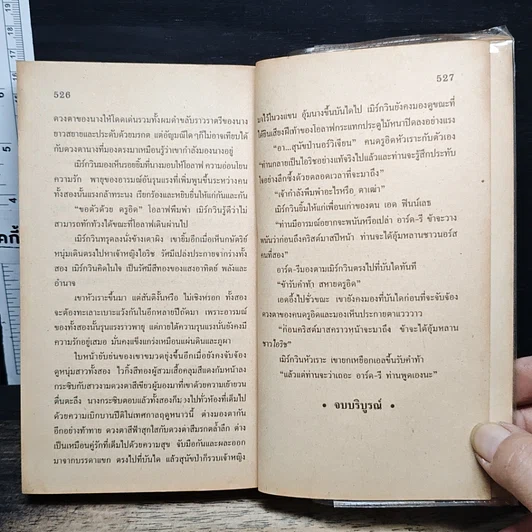 526
ดวงตาของนางให้โดดเด่นรวมทั้งผมดำขลับราวราตรีของนาง
ยาวสยายและประดับด้วยมรกต แต่อัญมณีใดๆก็ไม่อาจเทียบได้
กับดวงตานางที่มองตรงมาเหมือนรู้ว่าเขากำลังมองนางอยู่
เมิร์กวินมองเห็นรอยยิ้มที่นางมอบให้โอลาฟ ความอ่อนโยน
ความรัก พายุของอารมณ์อันรุนแรงที่เพิ่มพูนขึ้นระหว่างคน
ทั้งสองนั้นแรงกล้าทระนง เรียกร้องและหยิบยื่นให้แก่กันและกัน
“ขอตัวด้วย ดรูอิด” โอลาฟพึมพำ เมิร์กวินรู้ดีว่าไม่
สามารถทักท้วงได้ขณะที่โอลาฟเดินผ่านไป
เมิร์กวินทรุดลงนั่งข้างเตาผิง เขายิ้มอีกเมื่อเห็นกษัตริย์
หนุ่มเดินตรงไปหาเจ้าหญิงไอริช รัศมีเปล่งประกายจากร่างทั้ง
สอง เมิร์กวินคิดในใจ เป็นรัศมีสีทองของแสงอาทิตย์ พลังและ
อำนาจ
เขาหัวเราะขึ้นมา แต่สันติงั้นหรือ ไม่เชิงหรอก ทั้งสอง
จะต้องทะเลาะเบาะแว้งกันไปในอีกหลายปีถัดมา เพราะอารมณ์
ของทั้งสองนั้นรุนแรงราวพายุ แต่ภายใต้ความรุนแรงนั้นยังคงมี
ความรักอยู่เสมอ มั่นคงแข็งแกร่งเหมือนแผ่นดินและภูผา
ใบหน้าอันเหี่ยวย่นของเขาขมวดยุ่งขึ้นอีกเมื่อยังคงจับจ้อง
ดูหนุ่มสาวทั้งสอง ไวกิ้งสีทองผู้สวมเสื้อคลุมสีแดงก้มหน้าลง
กระซิบกับสาวงามดวงตาสีเขียวผู้มองมาที่เขาด้วยความเย้ายวน
ตื่นตะลึง นางกระซิบตอบแล้วทั้งสองก็มองไปทั่วห้องที่เต็มไป
ด้วยความเบิกบานปีติในเทศกาลฤดูหนาวนี้ ต่างมองตากัน
อีกอย่างท้าทาย ดวงตาสีฟ้าสุกใสกับดวงตาสีมรกตล้ำลึก ต่าง
เป็นเหมือนคู่รักที่เต็มไปด้วยความสุข จับมือกันและผละออก
มาจากบรรดาแขก ตรงไปที่บันได แล้วสุนัขป่าก็รวบเจ้าหญิง
527
มาไว้ในวงแขน อุ้มนางขึ้นบันไดไป เมิร์กวินยังคงมองดูขณะที่
ได้ยินเสียงฝีเท้าของโอลาฟกระแทกประตูไม้หนาปิดลงอย่างแรง
“อา...สุนัขป่านอร์วีเจียน” คนดรูอิดหัวเราะกับตัวเอง
“ท่านกลายเป็นไอริชอย่างแท้จริงไปแล้วและท่านจะรู้สึกประทับ
ใจอย่างลึกซึ้งด้วยตลอดเวลาที่จะมาถึง”
“เจ้ากำลังพึมพำอะไรหรือ ตาเฒ่า”
เมิร์กวินยิ้มให้แก่เพื่อนเก่าของตน เอด ฟินน์เลธ
“ท่านมีอารมณ์อยากจะพนันหรือเปล่า อาร์ด-รี ข้าจะวาง
พนันว่าก่อนถึงคริสต์มาสปีหน้า ท่านจะได้อุ้มหลานชาวนอร์ส
คนที่สอง”
อาร์ด-รีมองตามเมิร์กวินตรงไปที่บันไดทันที
“ข้ารับคำท้า สหายดรูอิด”
เอดอึ้งไปชั่วขณะ เขายังคงมองที่บันไดก่อนที่จะจับจ้อง
ดวงตาของคนดรูอิดและมองเห็นประกายตาแวววาว
“ก่อนคริสต์มาสคราวหน้าจะมาถึง ข้าจะได้อุ้มหลาน
ชาวไอริช”
เมิร์กวินหัวเราะ เขายกเหยือกเอลขึ้นรับคำท้า
“แล้วแต่ท่านจะว่าเถอะ อาร์ด-รี ท่านพูดเองนะ”
• จบบริบูรณ์ •